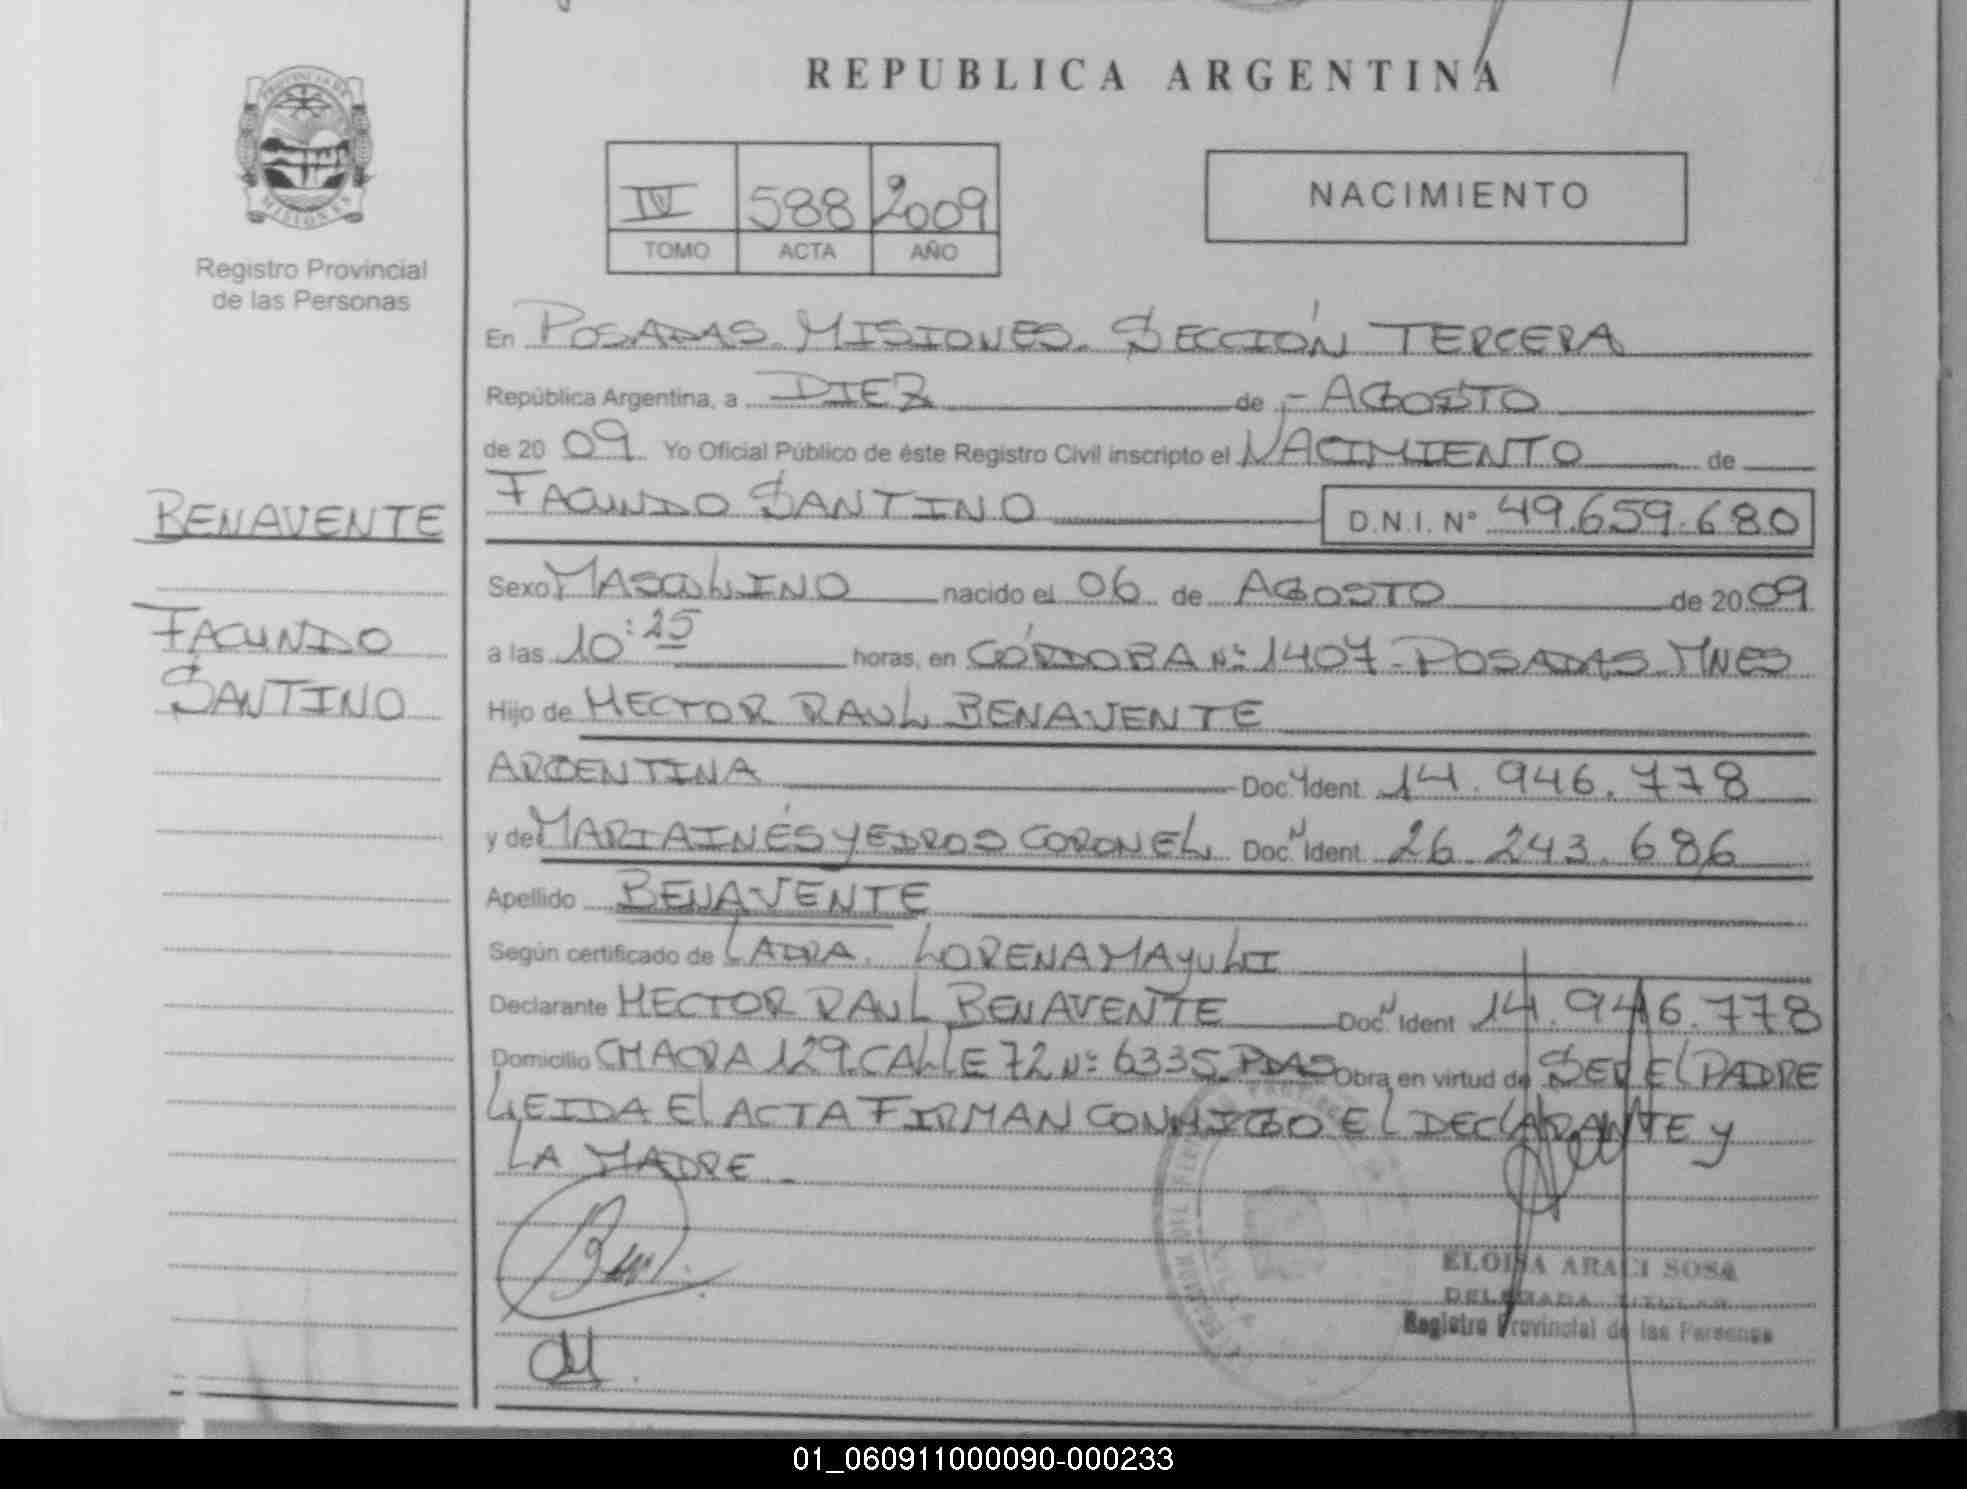 REPUBLICA ARGENTINA
PROVINCIA DE
MISIONES
Registro Provincial
de las Personas
IV 588 2009
TOMO ACTA AÑO
NACIMIENTO
En POSADAS. MISIONES. SECCIÓN TERCERA
República Argentina, a DIEZ de AGOSTO
de 2009. Yo Oficial Público de éste Registro Civil inscripto el NACIMIENTO de
FACUNDO SANTINO D.N.I. Nº 49.659.680
BENAVENTE
FACUNDO
SANTINO
Sexo MASCULINO nacido el 06 de AGOSTO de 2009
a las 10:25 horas, en CÓRDOBA Nº 1407. POSADAS. MNES
Hijo de HECTOR RAUL BENAVENTE
ARGENTINA Doc. N Ident. 14.946.778
y de MARIA INÉS YEDROS CORONEL Doc. N Ident. 26.243.686
Apellido BENAVENTE
Según certificado de LA DRA. LORENA MAYULI
Declarante HECTOR RAUL BENAVENTE Doc. N Ident 14.946.778
Domicilio CHACRA 129. CALLE 72 Nº 6335. PDAS Obra en virtud de SER EL PADRE
LEIDA El ACTA FIRMAN CONMIGO EL DECLARANTE y
LA MADRE.
ELOISA ARACI SOSA
DELEGADA TITULAR
Registro Provincial de las Personas
01_060911000090-000233